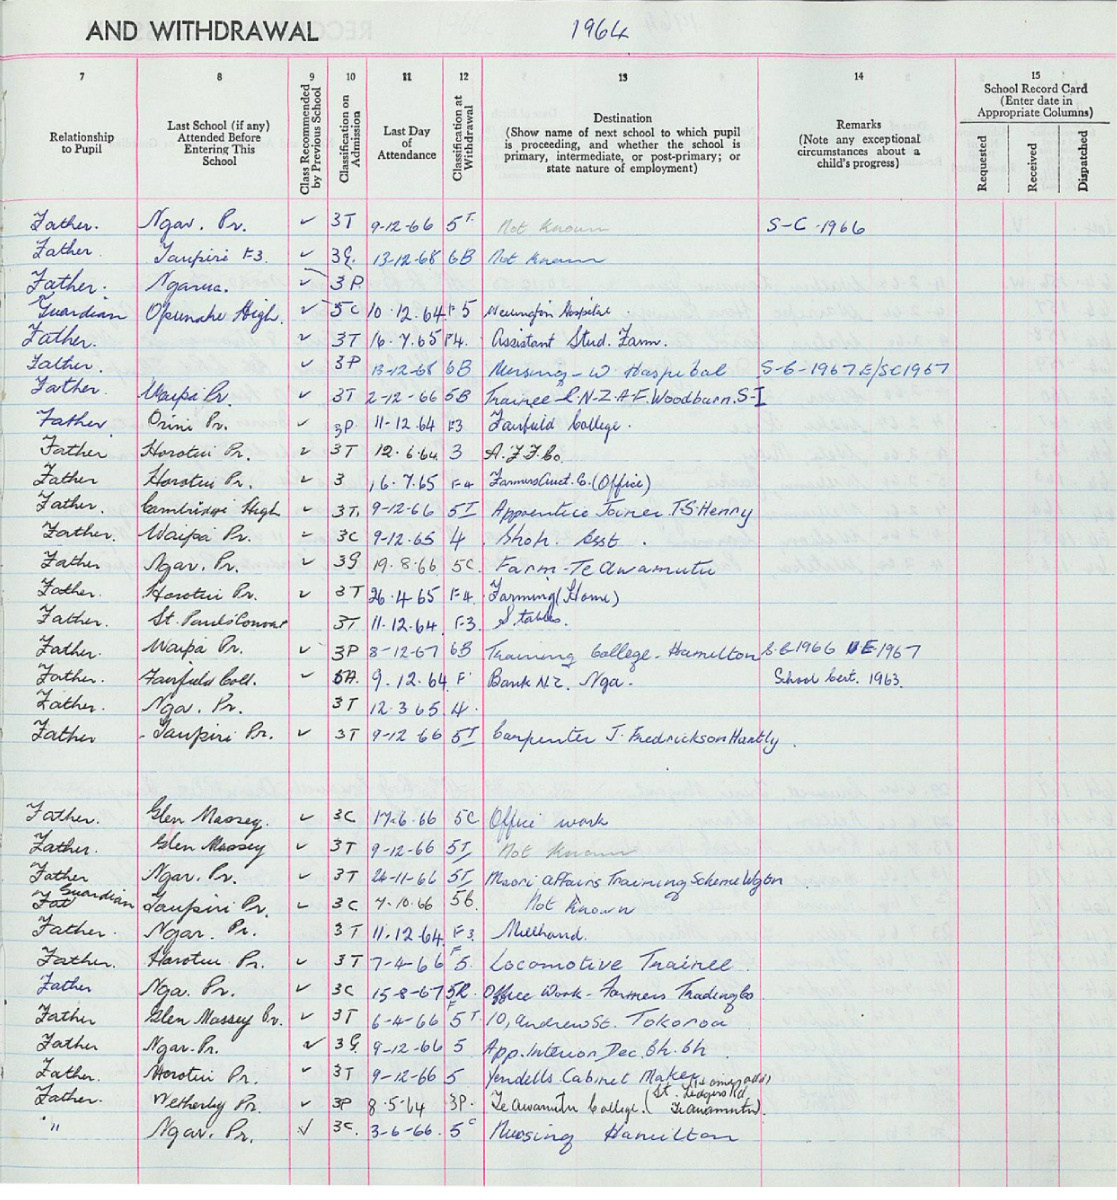 AND WITHDRAWAL 1964
7 8 9 10 11 12 13 14 15
Relationship to Pupil
Last School (if any) Attended Before Entering This School
Class Recommended by Previous School
Classification on Admission
Last Day of Attendance
Classification at Withdrawal
Destination (Show name of next school to which pupil is proceeding, and whether the school is primary, intermediate, or post-primary; or state nature of employment)
Remarks (Note any exceptional circumstances about a child's progress)
School Record Card (Enter date in Appropriate Columns)
Requested Received Dispatched
Father. Ngar. Pr. ✓ 3T 9-12-66 5T. Not known S-C-1966
Father Taupiri F3. ✓ 3G. 13-12-68 6B Not known
Father. Ngarua. ✓ 3P.
Guardian Opunake High. ✓ 5C 10.12.64 F5 Wellington Hospital.
Father. ✓ 3T 16.7.65 F4. Assistant Stud. Farm.
Father. ✓ 3P 13-12-68 6B Nursing-W Hospital S-6-1967 E/SC1967
Father Waipa Pr. ✓ 3T 2-12-66 5B Trainee R.N-Z-A-F. Woodburn. S-I
Father. Orini Pr. ✓ 3P 11-12.64 F3 Fairfield College.
Father Horotiu Pr. ✓ 3T 12.6.64 3 A.F.F.Co.
Father Horotiu Pr. ✓ 3 16.7.65 F4 Farmers Auct. C. (Office)
Father. Cambridge High ✓ 3T. 9-12-66 5T Apprentice Joiner. T.S. Henry
Father. Waipa Pr. ✓ 3C 9-12.65 4 Shop. Asst.
Father Ngar. Pr. ✓ 3G 19.8.66 5C. Farm-Te Awamutu
Father. Horotiu Pr. ✓ 3T 26.4.65 F4. Farming (Home)
Father. St. Paul's Convent 3T 11.12.64. F3. Stables.
Father. Waipa Pr. ✓ 3P 8-12-67 6B Training College-Hamilton S.C 1966 UE 1967
Father. Fairfield Coll. ✓ 5A. 9.12.64 F Bank N.Z. Nga. School Cert. 1963.
Father. Nga. Pr. 3T 12.3.65 4.
Father - Taupiri Pr. ✓ 3T 9-12 66 5T Carpenter J. Fredrickson Huntly.
Father. Glen Massey. ✓ 3C 17.6.66 5C Office work
Father. Glen Massey ✓ 3T 9-12-66 5T Not known
Father Ngar. Pr. ✓ 3T 24-11-66 5T Maori Affairs Training Scheme Wgton
Fat Guardian Taupiri Pr. ✓ 3C 7.10.66 5C. Not known
Father. Ngar. Pr. ✓ 3T 11.12.64. F3. Millhand.
Father. Horotiu Pr. ✓ 3T 7-4-66 F5. Locomotive Trainee.
Father Nga. Pr. ✓ 3C 15-8-67 5R. Office Work-Farmers Trading Co.
Father Glen Massey Pr. ✓ 3T 6-4-66 F5T. 10, Andrew St. Tokoroa
Father Ngar. Pr. ✓ 3G 9-12-66 5 App. Interior Dec. Ch. Ch.
Father. Horotiu Pr. ✓ 3T 9-12-66 5 Yendells Cabinet Maker
Father. Wetherby Pr. ✓ 3P 8.5.64 3P. Te Awamutu College. (St. Ledgers Rd Te Awamutu).
" Ngar. Pr. ✓ 3C. 3-6-66. 5C Nursing Hamilton